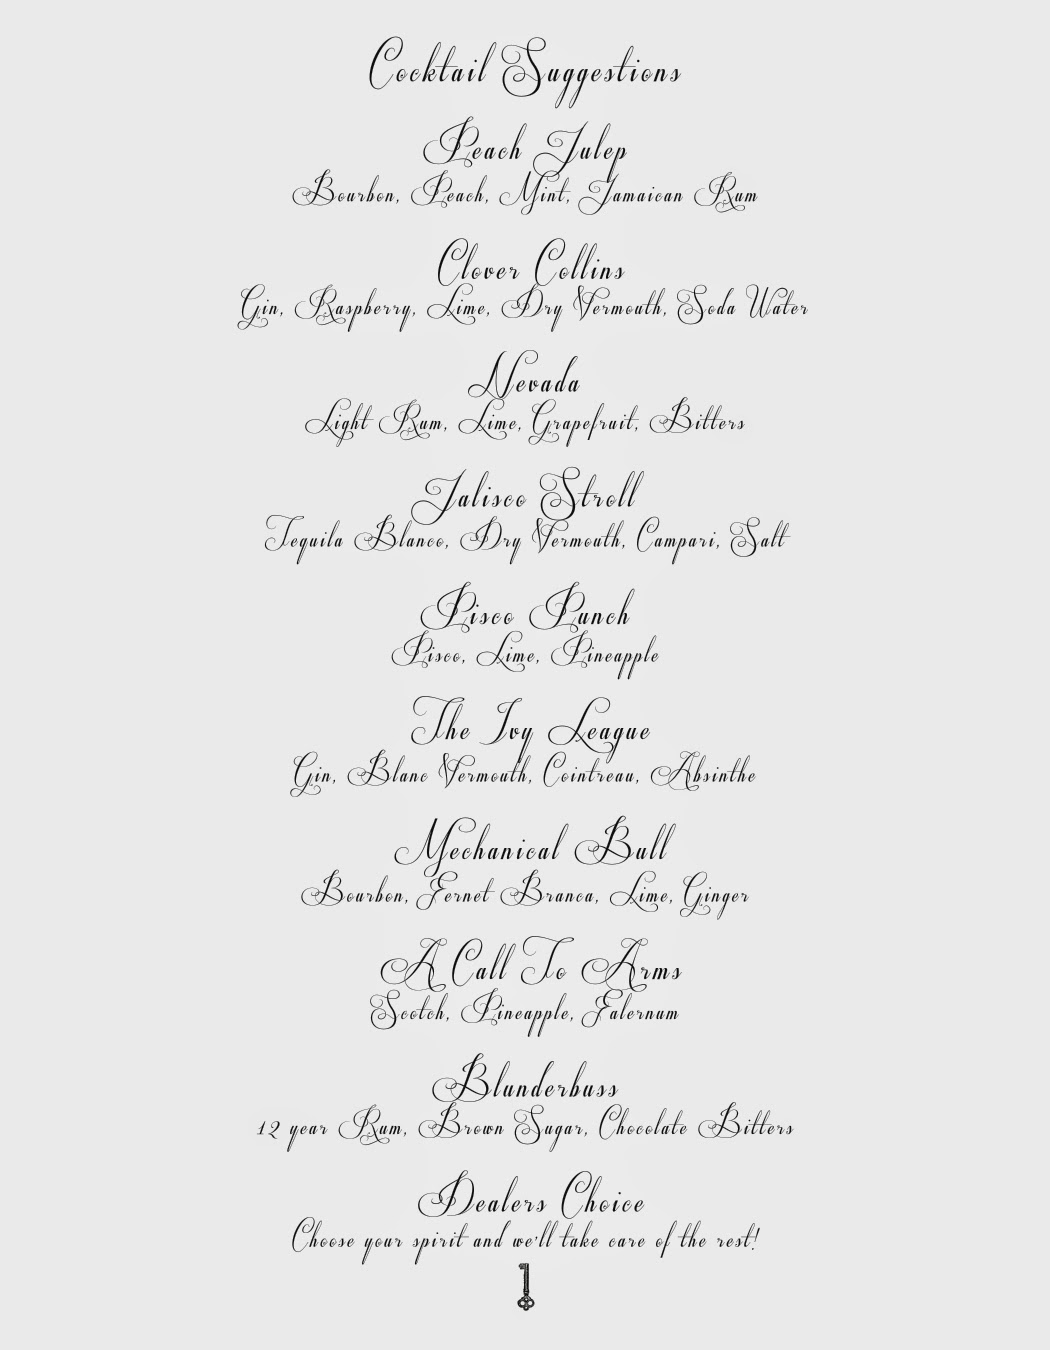 Cocktail Suggestions
Peach Julep
Bourbon, Peach, Mint, Jamaican Rum
Clover Collins
Gin, Raspberry, Lime, Dry Vermouth, Soda Water
Nevada
Light Rum, Lime, Grapefruit, Bitters
Jalisco Stroll
Tequila Blanco, Dry Vermouth, Campari, Salt
Pisco Punch
Pisco, Lime, Pineapple
The Ivy League
Gin, Blanc Vermouth, Cointreau, Absinthe
Mechanical Bull
Bourbon, Fernet Branca, Lime, Ginger
A Call To Arms
Scotch, Pineapple, Falernum
Blunderbuss
12 year Rum, Brown Sugar, Chocolate Bitters
Dealers Choice
Choose your spirit and we'll take care of the rest!